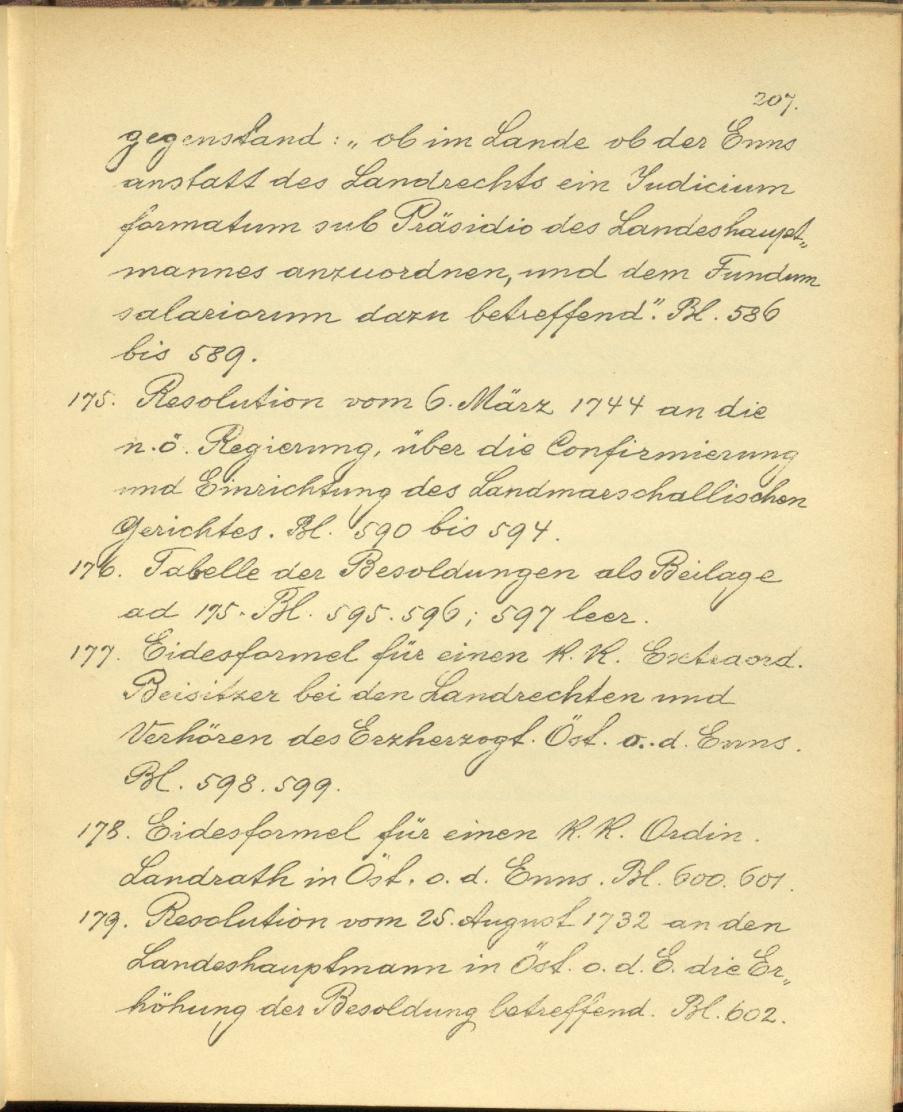 207.
gegenstand : „ ob im Lande ob der Enns
anstatt des Landrechts ein Judicium
formatum sub Präsidio des Landeshaupt„
mannes anzuordnen, und dem Fundum
salariorum dazu betreffend“. Bl. 586
bis 589.
175. Resolution vom 6. März 1744 an die
n.ö. Regierung, über die Confirmierung
und Einrichtung des Landmarschallischen
Gerichtes. Bl. 590 bis 594.
176. Tabelle der Besoldungen als Beilage
ad 175. Bl. 595. 596; 597 leer.
177. Eidesformel für einen K. K. Extraord.
Beisitzer bei den Landrechten und
Verhören des Erzherzogt. Öst. o. d. Enns.
Bl. 598. 599.
178. Eidesformel für einen K. K. Ordin.
Landrath in Öst. o. d. Enns. Bl. 600. 601.
179. Resolution vom 25. August 1732 an den
Landeshauptmann in Öst. o. d. E. die Er„
höhung der Besoldung betreffend. Bl. 602.